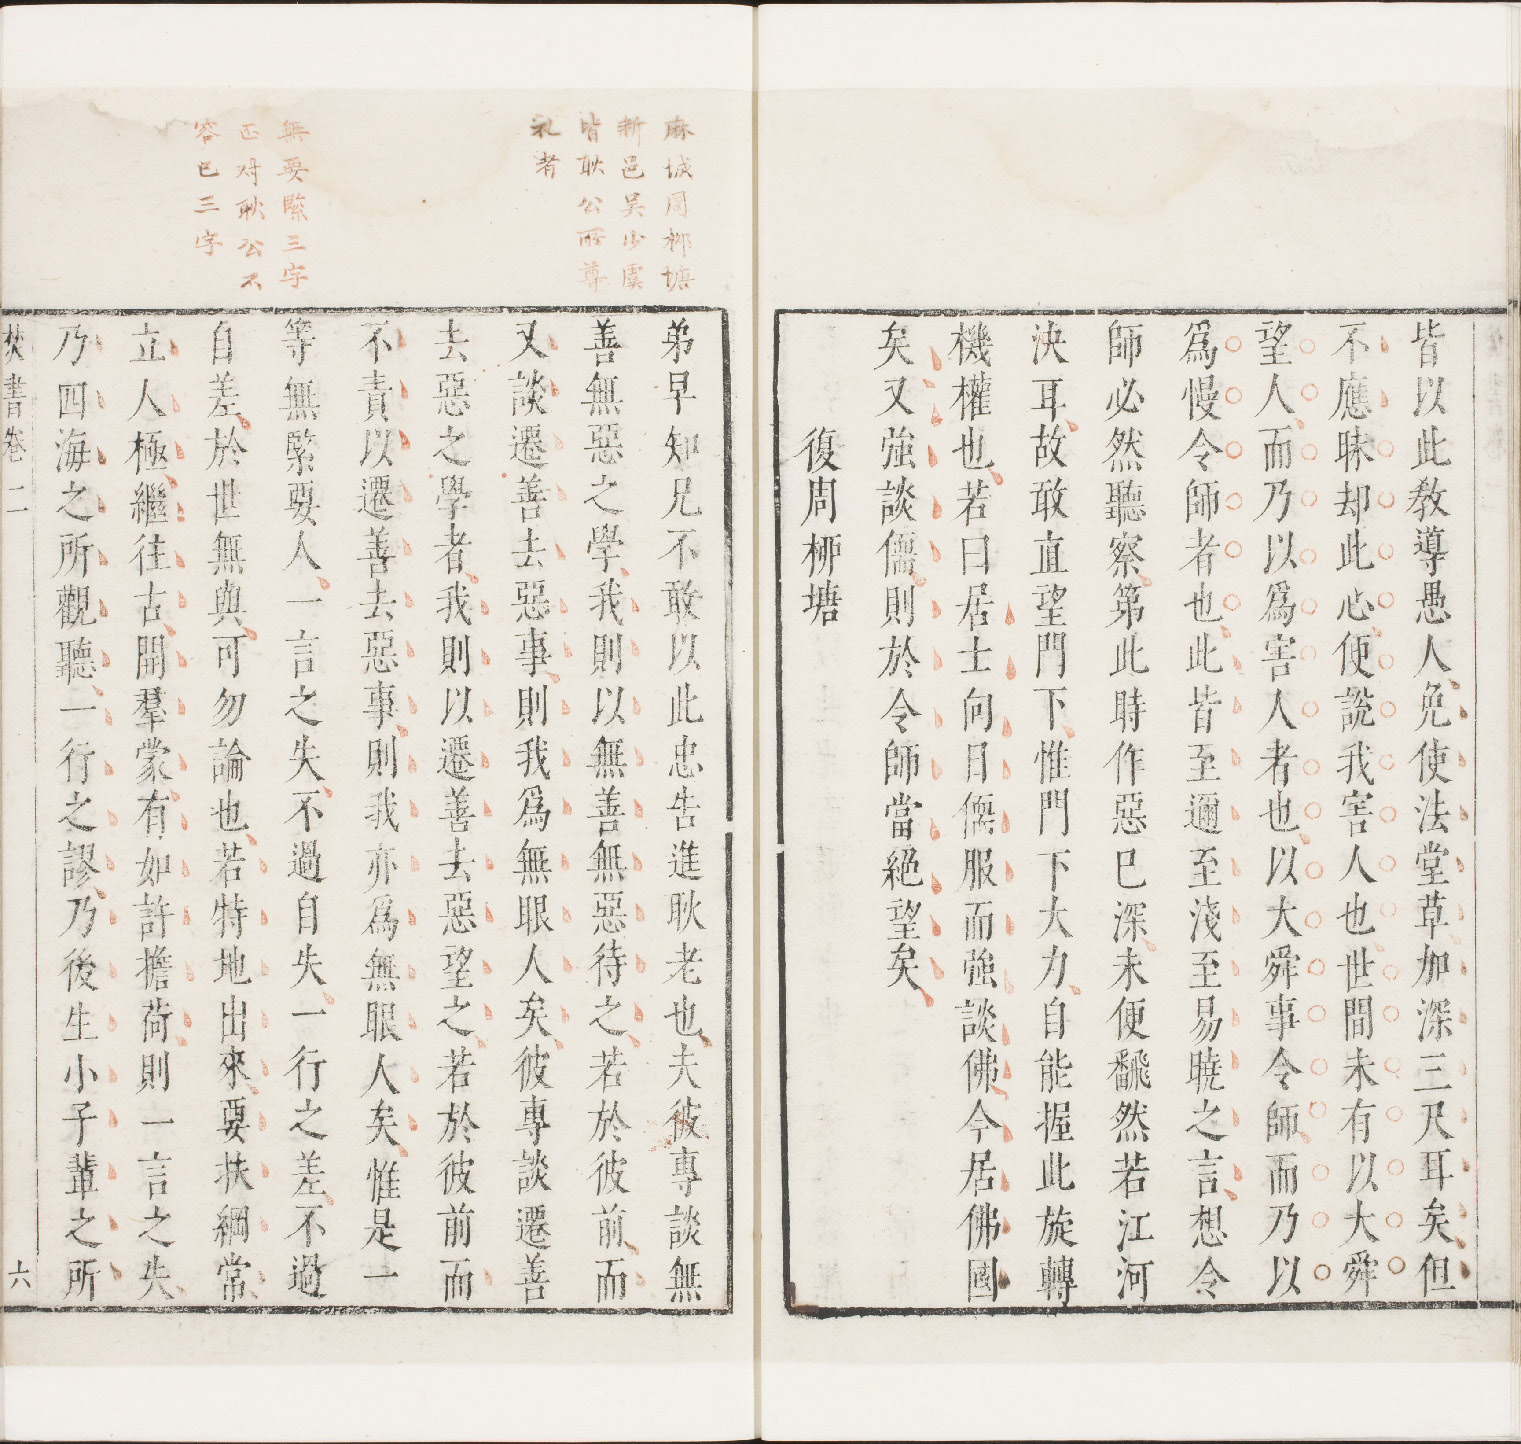 皆以此教導愚人免使法堂草加深三尺耳矣但
不應昧却此心便說我害人也世間未有以大舜
望人而乃以爲害人者也以大舜事令師而乃以
爲慢令師者也此皆至邇至淺至易曉之言想令
師必然聽察第此時作惡巳深未便飜然若江河
決耳故敢直望門下惟門下大力自能握此旋轉
機權也若曰居士向日儒服而強談佛今居佛國
矣又強談儒則於令師當絕望矣
復周柳塘
麻城周柳塘
新邑吳少虞
皆耿公所尊
礼者
無要緊三字
正对耿公不
容已三字
弟早知兄不敢以此忠告進耿老也夫彼專談無
善無惡之學我則以無善無惡待之若於彼前而
又談遷善去惡事則我爲無眼人矣彼專談遷善
去惡之學者我則以遷善去惡望之若於彼前而
不責以遷善去惡事則我亦爲無眼人矣惟是一
等無緊要人一言之失不過自失一行之差不過
自差於世無與可勿論也若特地出來要扶綱常
立人極繼往古開羣蒙有如許擔荷則一言之失
乃四海之所觀聽一行之謬乃後生小子輩之所
焚書卷二
六